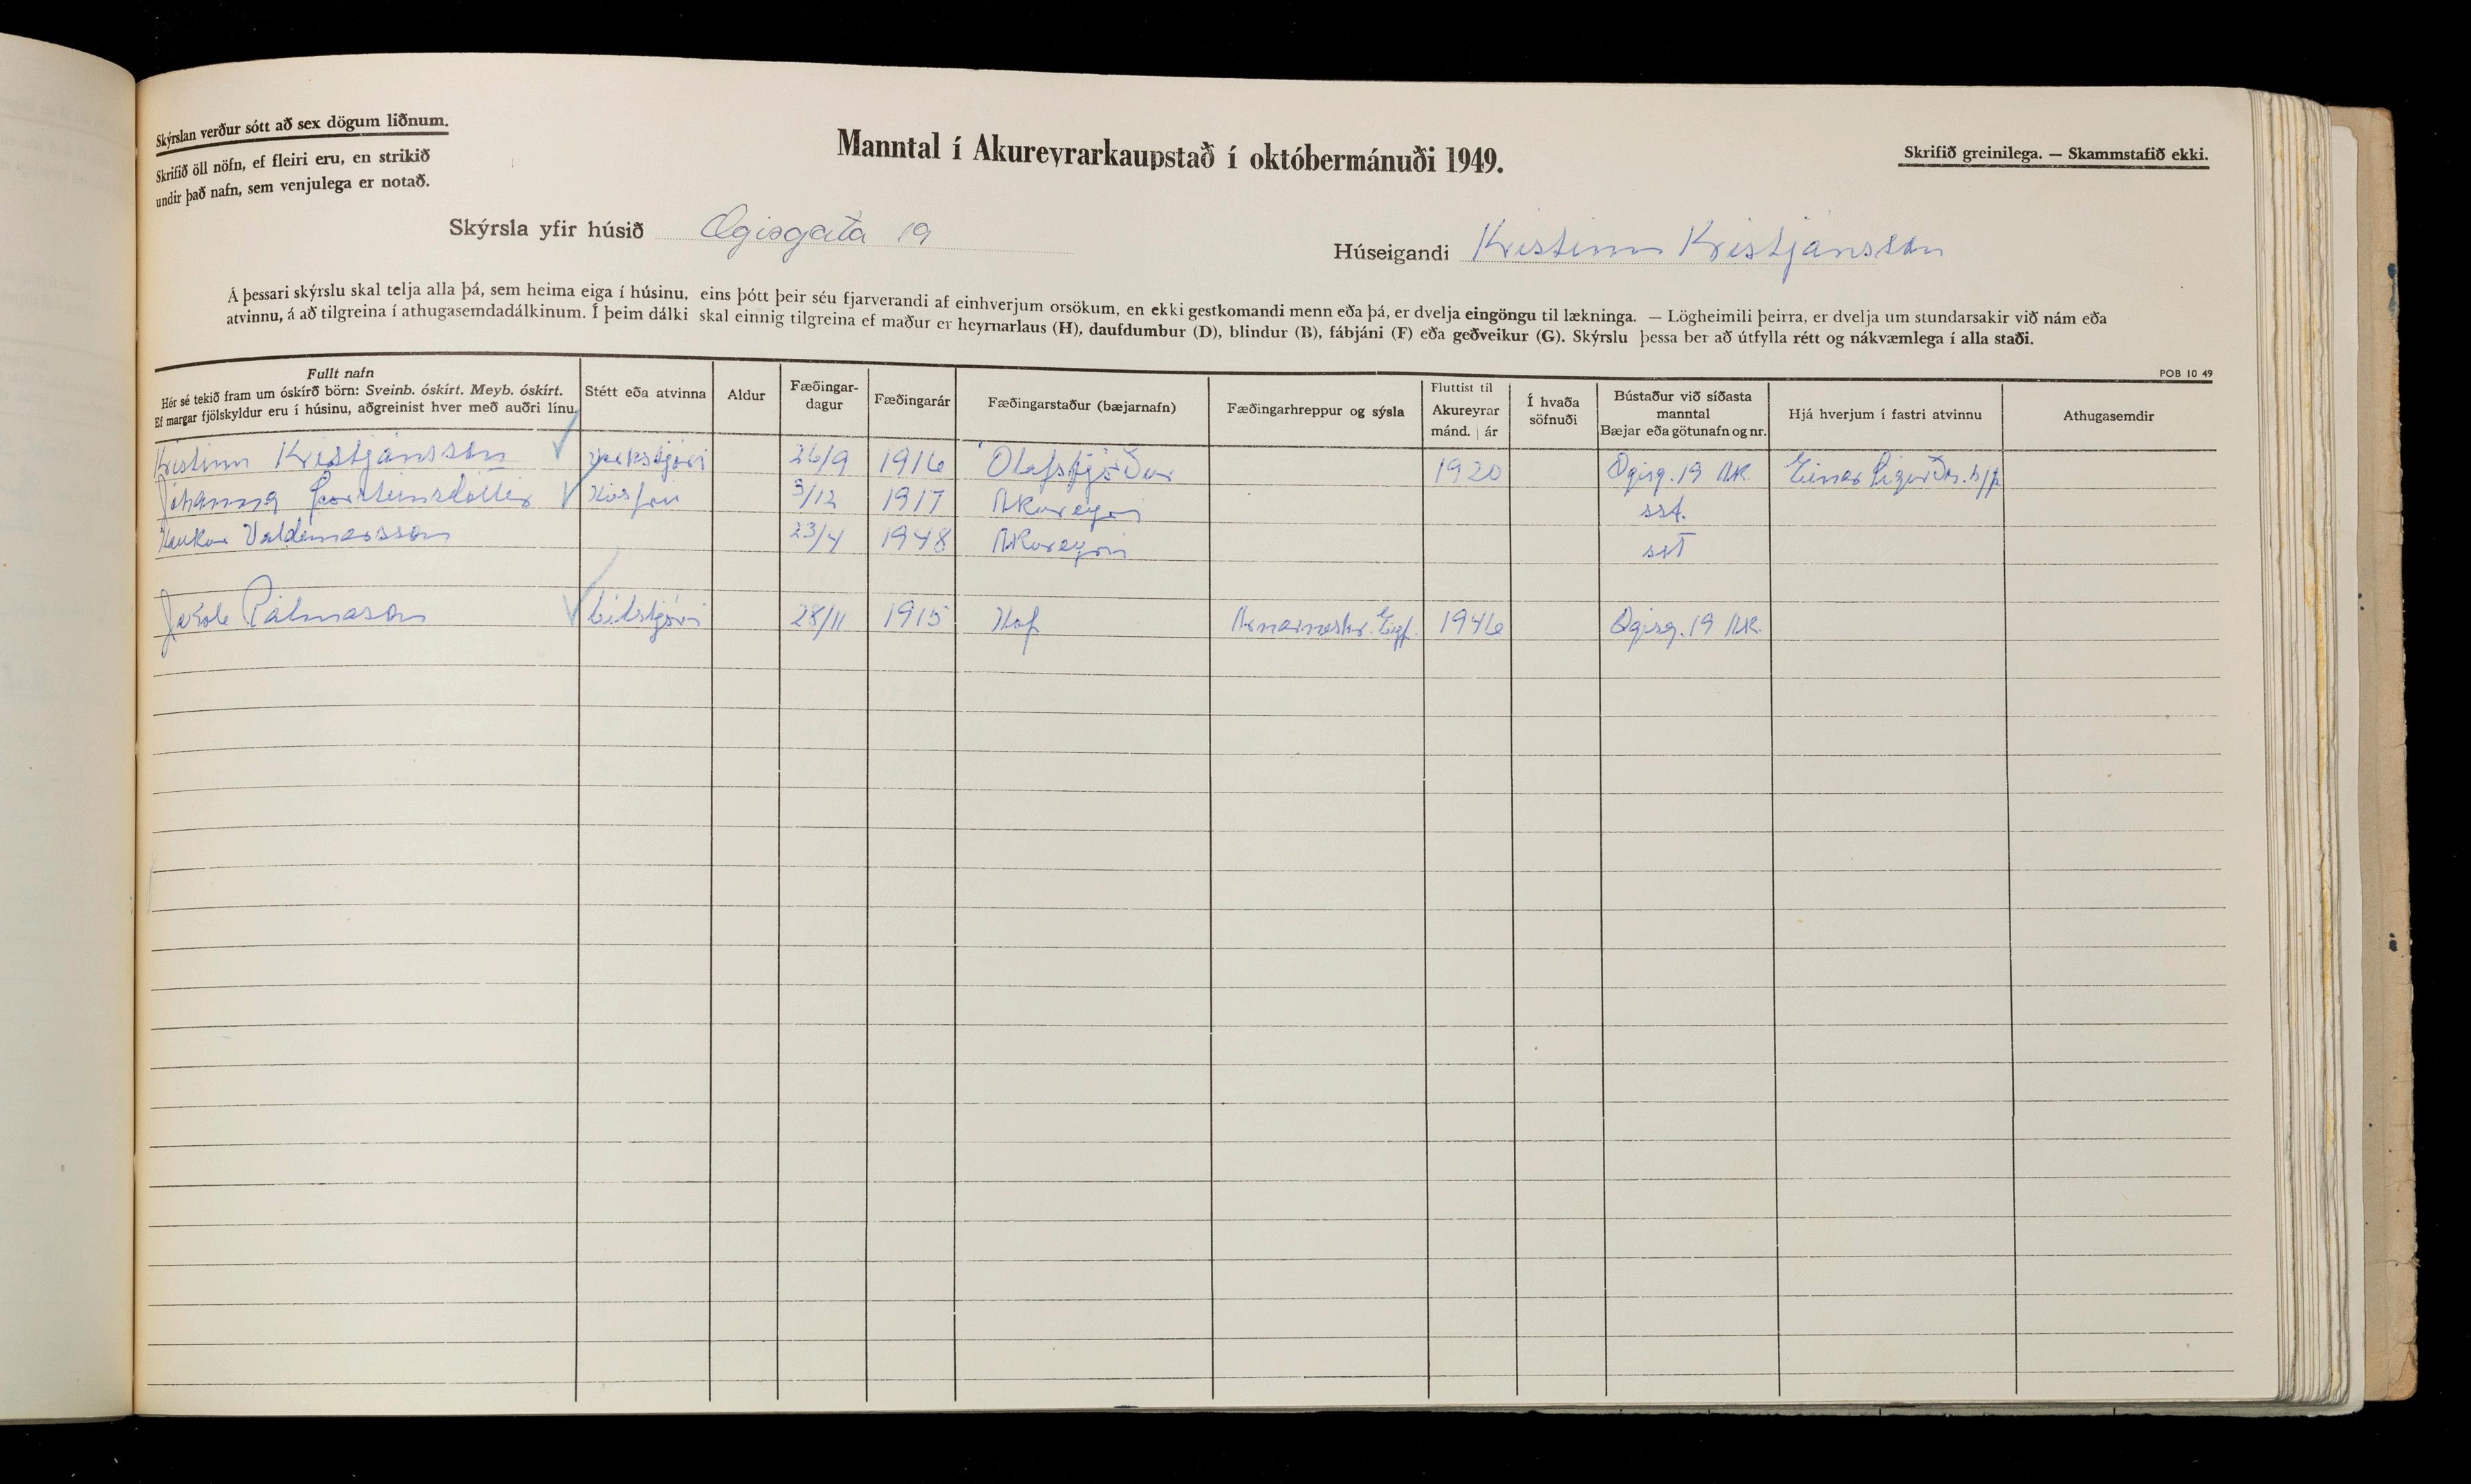 Skýrslan verður sótt að sex dögum liðnum.
Skrifið öll nöfn, ef fleiri eru, en strikið
undir það nafn, sem venjulega er notað.
Manntal í Akureyrarkaupstað í októbermánuði 1949.
Skrifið greinilega. — Skammstafið ekki.
Skýrsla yfir húsið Ægisgata 19
Húseigandi Kristinn Kristjánsson
Á þessari skýrslu skal telja alla þá, sem heima eiga í húsinu, eins þótt þeir séu fjarverandi af einhverjum orsökum, en ekki gestkomandi menn eða þá, er dvelja eingöngu til lækninga. — Lögheimili þeirra, er dvelja um stundarsakir við nám eða
atvinnu, á að tilgreina í athugasemdadálkinum. Í þeim dálki skal einnig tilgreina ef maður er heyrnarlaus (H), daufdumbur (D), blindur (B), fábjáni (F) eða geðveikur (G). Skýrslu þessa ber að útfylla rétt og nákvæmlega í alla staði.
POB 10 49
Fullt nafn
Hér sé tekið fram um óskírð börn: Sveinb. óskírt. Meyb. óskírt.
Ef margar fjölskyldur eru í húsinu, aðgreinist hver með auðri línu.
Stétt eða atvinna
Aldur
Fæðingar-
dagur
Fæðingarár
Fæðingarstaður (bæjarnafn)
Fæðingarhreppur og sýsla
Fluttist til
Akureyrar
mánd. ár
Í hvaða
söfnuði
Bústaður við síðasta
manntal
Bæjar eða götunafn og nr.
Hjá hverjum í fastri atvinnu
Athugasemdir
Kristinn Kristjánsson verkstjóri 26/9 1916 Ólafsfjörður 1920 Ægisg. 19 AK. Einar Sigurðs. h/f
Jóhanna Þorsteinsdóttir Húsfrú 3/12 1917 Akureyri sst.
Haukur Valdemarsson 23/4 1948 Akureyri sst
Jakob Pálmason bílstjóri 28/11 1915 Hof Arnarneshr. Eyf. 1946 Ægisg. 19 AK.